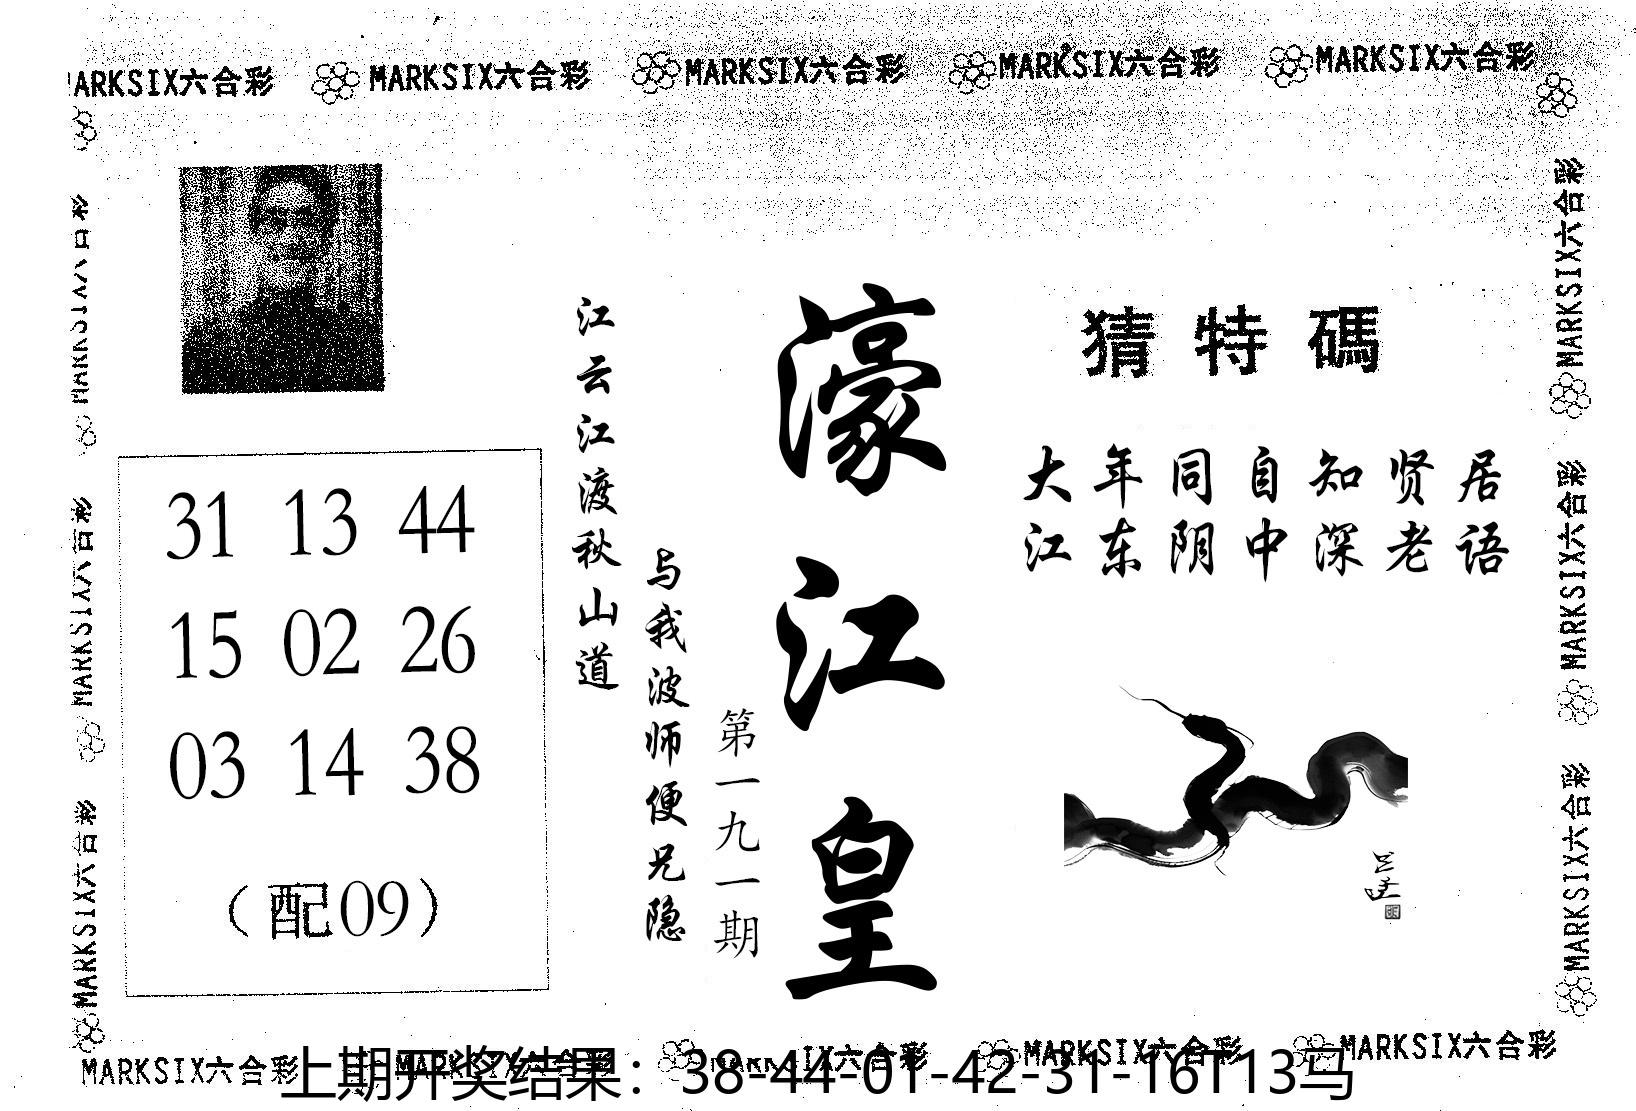 MARKSIX六合彩 MARKSIX六合彩 MARKSIX六合彩 MARKSIX六合彩
MARKSIX六合彩
MARKSIX六合彩
MARKSIX六合彩
MARKSIX六合彩
MARKSIX六合彩
MARKSIX六合彩
31 13 44
15 02 26
03 14 38
（配09）
江云江渡秋山道
与我波师便兄隐
第一九一期
濠江皇
猜特碼
大年同自知贤居
江东阴中深老语
MARKSIX六合彩 MARKSIX六合彩 MARKSIX六合彩
上期开奖结果：38-44-01-42-31-16T13马